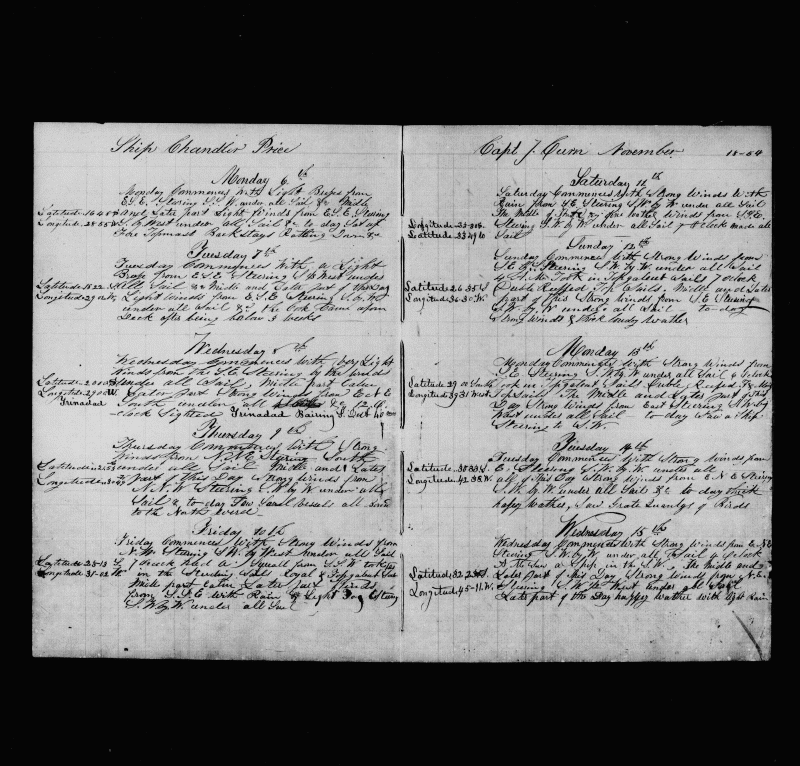 Ship Chandler Price
Monday 6th
Monday Commences with Light Breses from
E.S.E. Stering S.S.W. under all Sail &c Middle
Latitude 16.45 and Later part Light Winds from E.S.E Stering
Longitude 28.55 by West under all Sail & to day Set up
Fore Topmast Backstays Ratling Down &c
Tuesday 7th
Tuesday Commences With a Light
Brese from E.S.E Stering S. by West under
Latitude 18.22 all Sail &c Middle and Later part of this Day
Longitude 29 Light Winds from E.S.E Stering S. by W.
under all Sail & the Cook Came upon
Deck after being below 3 weeks
Wednesday 8th
Wednesday Commences with Very Light
Winds from the S.E Stering by the wind
Latitude 20 under all Sail, Middle part Calm
Longitude 29 Later part Strong Winds from E.N.E
Trinadad South under all
clock Sighted Trinadad Bairing
Thursday 9th
Thursday Commences With Strong
Winds from N.N.E Stering South
Latitude under all Sail Middle and Later
Longitude part of this Day Strong Winds from
N.N.E Stering S.W by W under all
Sail & to day Saw Saveral Vessels all bound
to the North werd
Friday 10th
Friday Commences With Strong Winds from
N.W. Stering S.W. by West under all Sail
Latitude 25-13 S. 7 Oclock had a Squall from S.S.W took
Longitude 31-02 W. in the Studing Sail Royal & Topgalent Sail
Middle part Calm Later part Winds
from S.S.E with Rain & Light Fog Stering
S.W by W under all Sail
Capt J. Curn November 18-54
Saturday 11th
Saturday Commences with Strong Winds With
Rain from S.E. Stering S.W by W under all Sail
The Middle & Later part Winds from S.S.E.
Longitude Stering S.W. by W under all Sail 8 Oclock made all
Latitude Sail
Sunday 12th
Sunday Commences With Strong Winds from
S.E. Stering S.W by W under all Sail
4 A.M. Took in Topgalent Sails 7 Oclock
Latitude 26.35 S Duble Reefed Top Sails, Middle and Later
Longitude 36.30 W. part of this Strong Winds from S.E Stering
S.W. by W under all Sail to day
Strong Winds & thick Cloudy Wather
Monday 13th
Monday Commences With Strong Winds from
S.E Stering S.W by W under all Sail
Latitude 29 South took in Topgalent Sails Duble Reefed
Longitude 39.31 West Topsails The Middle and Later part of this
Day Strong Winds from East Stering S.W by
West under all Sail to day Saw a Ship
Stering to S.W.
Tuesday 14th
Tuesday Commences With Strong Winds from
Latitude E. Stering S.W. by W under all
Longitude 42.38 W. all of this Day Strong Winds from E N E Stering
S.W. by W under all Sails &c to day thick
hazey Wather, Saw Grate quantys of Birds
Wednesday 15th
Wednesday Commences With Strong Winds from E.N.E
Stering S.W. by W under all Sail 4 Oclock
A.M. Saw a Ship in the S.W. The Middle and
Latitude 32 Later part of this Day Strong Winds from N.E.
Longitude 45-11 W. Stering S.W. by West under all Sail
Later part of the Day hazey Wather with Light Rain